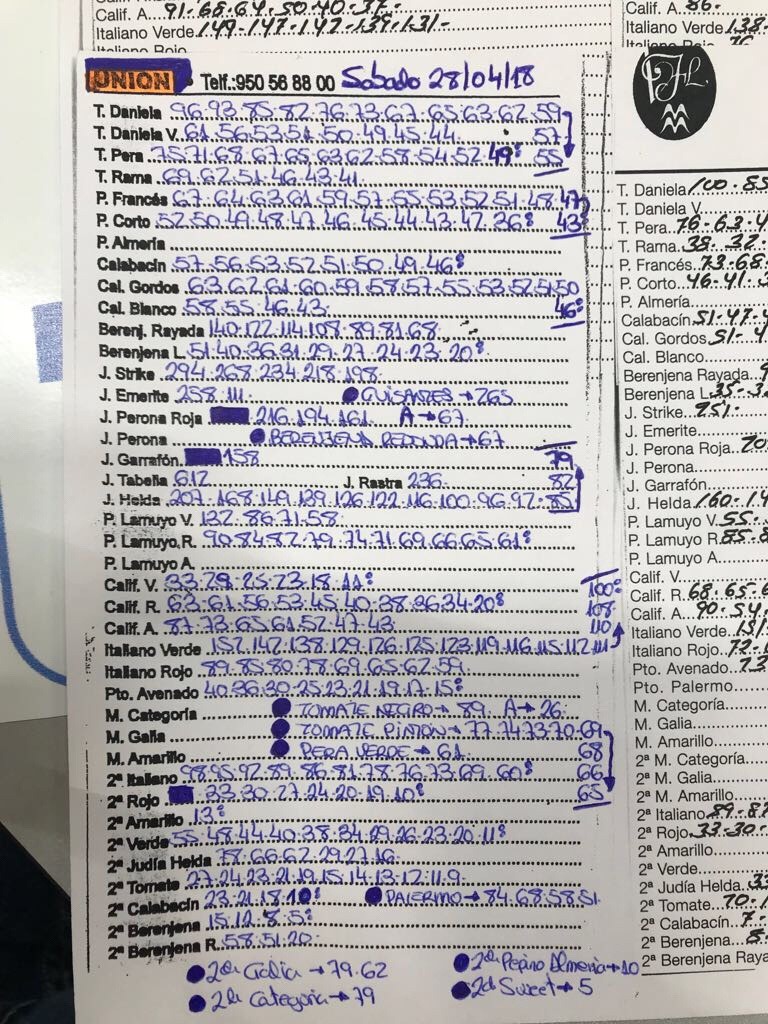 Calif. A. 91-68-64-50-40-37-
Italiano Verde 149-147-142-139-131-
Italiano Rojo
UNION Telf.:950 56 88 00 Sabado 28/04/18
T. Daniela 96.93.85.82.76.73.67.65.63.62.59
T. Daniela V. 61.56.53.51.50.49.45.44. 57
T. Pera 75.71.68.67.65.63.62.58.54.52.49: 55
T. Rama 69.62.51.46.43.41.
P. Francés 67.64.63.61.59.57.55.53.52.51.48.47
P. Corto 52.50.49.48.47.46.45.44.43.42.36: 43
P. Almería
Calabacín 57.56.53.52.51.50.49.46:
Cal. Gordos 63.62.61.60.59.58.57.55.53.52.51.50
Cal. Blanco 58.55.46.43. 46:
Berenj. Rayada 140.122.114.108.89.81.68.
Berenjena L. 51.40.36.31.29.27.24.23.20:
J. Strike 294.268.234.218.198.
J. Emerite 258.111 GUISANTES → 265
J. Perona Roja 216.194.161. A → 67
J. Perona BERENJENA REDONDA → 67
J. Garrafón 158 79
J. Tabella 612 J. Rastra 236 82
J. Helda 207.168.149.139.126.122.116.100.96.92.85
P. Lamuyo V. 132.86.71.58.
P. Lamuyo R. 90.84.82.79.74.71.69.66.65.61:
P. Lamuyo A.
Calif. V. 33.29.25.23.18.11: 100:
Calif. R. 63.61.56.53.45.40.38.36.34.20: 108
Calif. A. 87.73.65.61.52.47.43. 110
Italiano Verde 152.142.138.129.126.125.123.119.116.115.112.111
Italiano Rojo 89.85.80.78.69.65.62.59
Pto. Avenado 40.36.30.25.23.21.19.17.15:
M. Categoría TOMATE NEGRO → 89. A → 26.
M. Galia TOMATE PINTON → 77.74.73.70.69
M. Amarillo PERA VERDE → 61 68
2ª Italiano 98.95.92.89.86.81.78.76.73.69.60: 66
2ª Rojo 33.30.27.24.20.19.10: 65
2ª Amarillo 13:
2ª Verde 55.48.44.40.38.34.29.26.23.20.11:
2ª Judía Helda 78.66.62.29.27.16
2ª Tomate 27.24.23.21.19.15.14.13.12.11.9.
2ª Calabacín 23.21.18.10: PALERMO → 84.68.58.51
2ª Berenjena 15.12.8.5:
2ª Berenjena R. 58.51.20.
2da Galia → 79.62 2da Pepino Almeria → 10
2da Categoria → 79 2d Sweet → 5
Calif. A. 86.
Italiano Verde 138-
Italiano Rojo 76
T. Daniela 100.85
T. Daniela V.
T. Pera 76-63-4
T. Rama 38.32.
P. Francés 73-68-
P. Corto 46-41-3
P. Almería
Calabacín 51-47-4
Cal. Gordos 51-4
Cal. Blanco
Berenjena Rayada
Berenjena L. 35-3
J. Strike 251-
J. Emerite
J. Perona Roja 20
J. Perona
J. Garrafón
J. Helda 160-14
P. Lamuyo V. 55.
P. Lamuyo R. 85-8
P. Lamuyo A.
Calif. V.
Calif. R. 68-65-6
Calif. A. 90-54
Italiano Verde 151
Italiano Rojo 72-
Pto. Avenado 23
Pto. Palermo
M. Categoría
M. Galia
M. Amarillo
2ª M. Categoría
2ª M. Galia
2ª M. Amarillo
2ª Italiano 89-87
2ª Rojo 33-30-
2ª Amarillo
2ª Verde
2ª Judía Helda 3
2ª Tomate 70-1
2ª Calabacín 7-
2ª Berenjena 8-
2ª Berenjena Raya